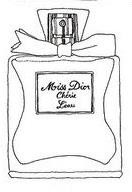 Miss Dior
Chérie
L'eau